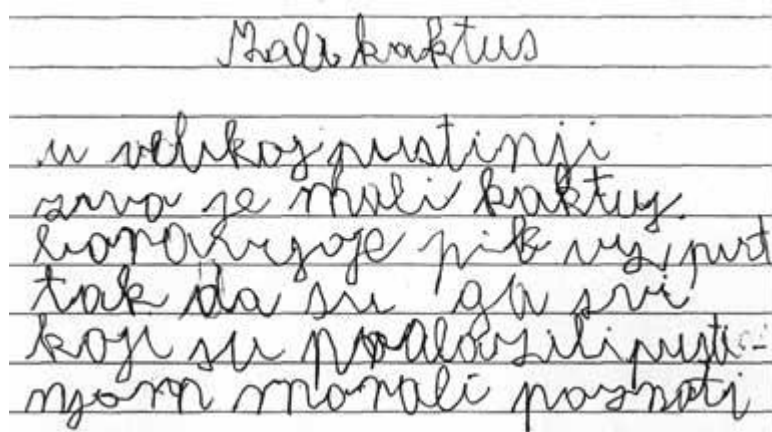 Mali kaktus
u velikoj pustinji
je mali kaktus
uz put
tak da su ga svi
koji su prolazili pusti-
njom morali poznati